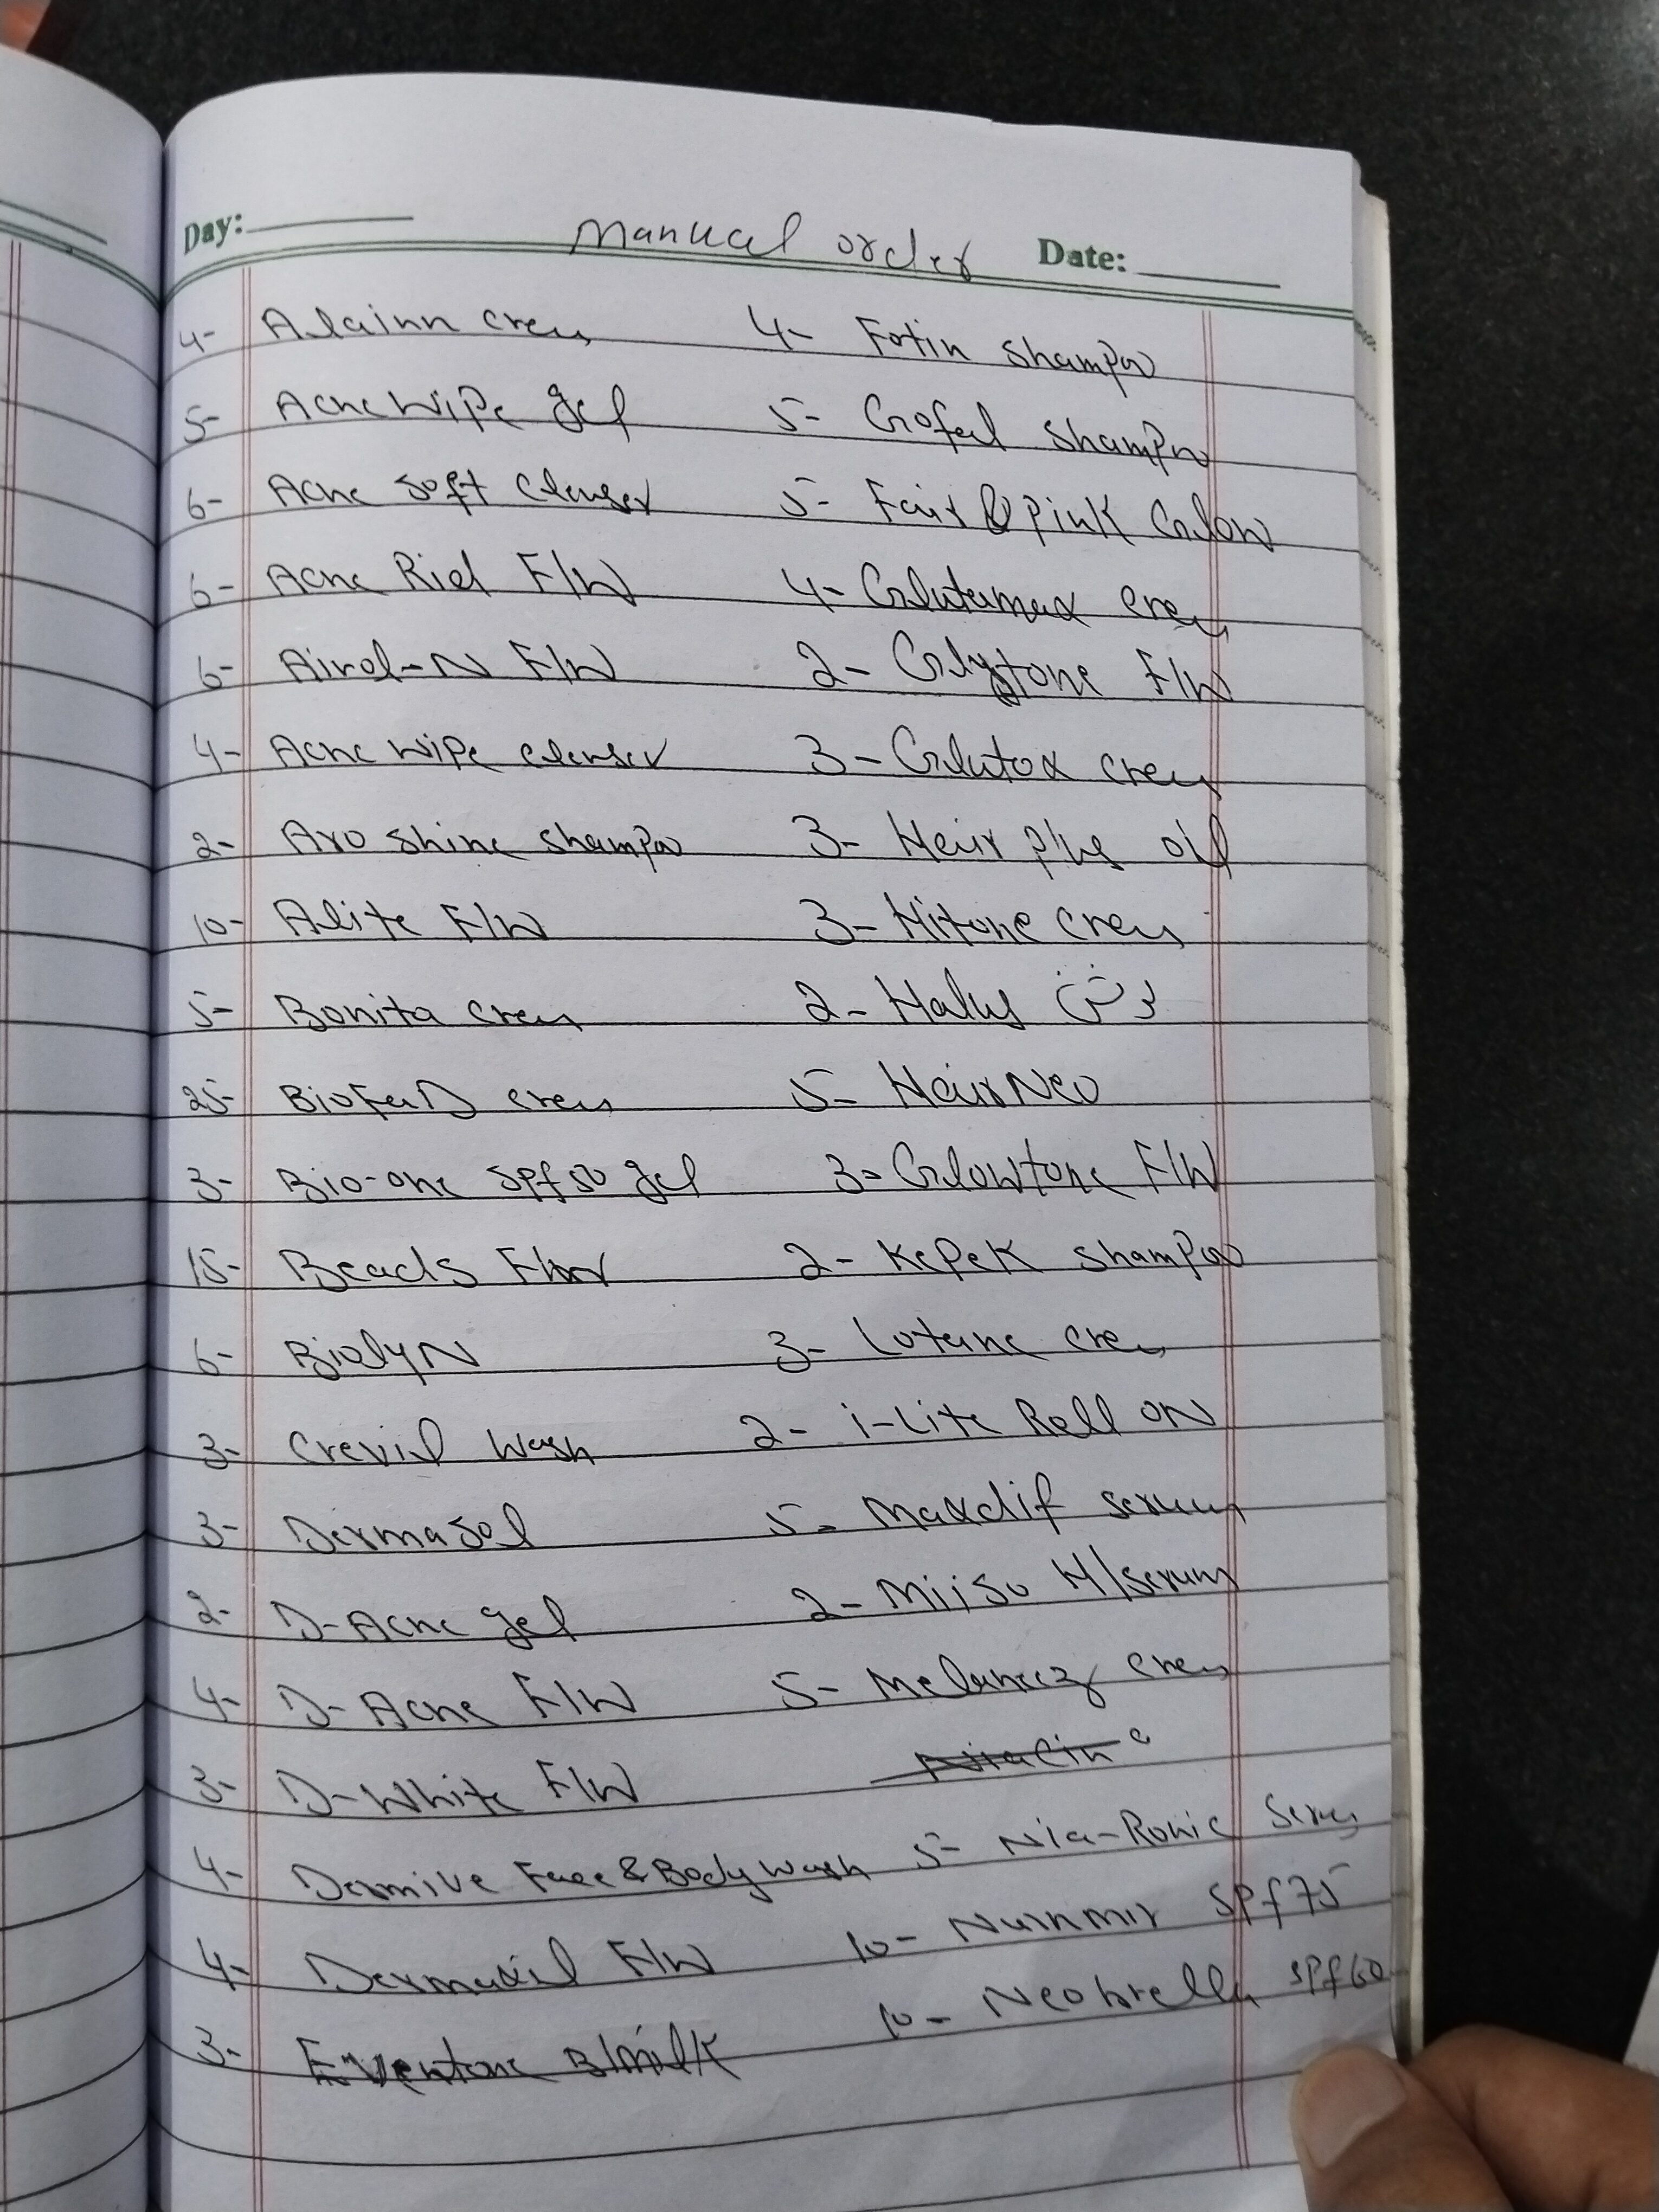 Day: Manual order Date:
4- Alainn crem 4- Fotin shampo
5- Acne Wipe gel 5- Gofal shampo
6- Acne soft clenser 5- Fair & Pink Glow
6- Acne Riel F/W 4- Glutamax crem
6- Airol-N F/W 2- Glytone F/W
4- Acne Wipe clenser 3- Glutox crem
2- Aro shine shampo 3- Hair plus oil
10- Alite F/W 3- Hitone crem
5- Bonita crem 2- Halus لوشن
25- Biofer D crem 5- Hair Neo
3- Bio-one SPF50 gel 3- Glowtone F/W
15- Beads F/W 2- KepeK shampoo
6- BiolyN 3- Lotane crem
3- Crevil Wash 2- i-Lite Roll ON
3- Dermasol 5- Maxdif serum
2- D-Acne gel 2- Miiso H/serum
4- D-Acne F/W 5- Melanecz crem
3- D-White F/W
4- Dermive Face & Body wash 5- Nia-Ronic Serum
4- Dermaxil F/W 10- SPF75
3- Eventone B/milk 10- Neobrella SPF60